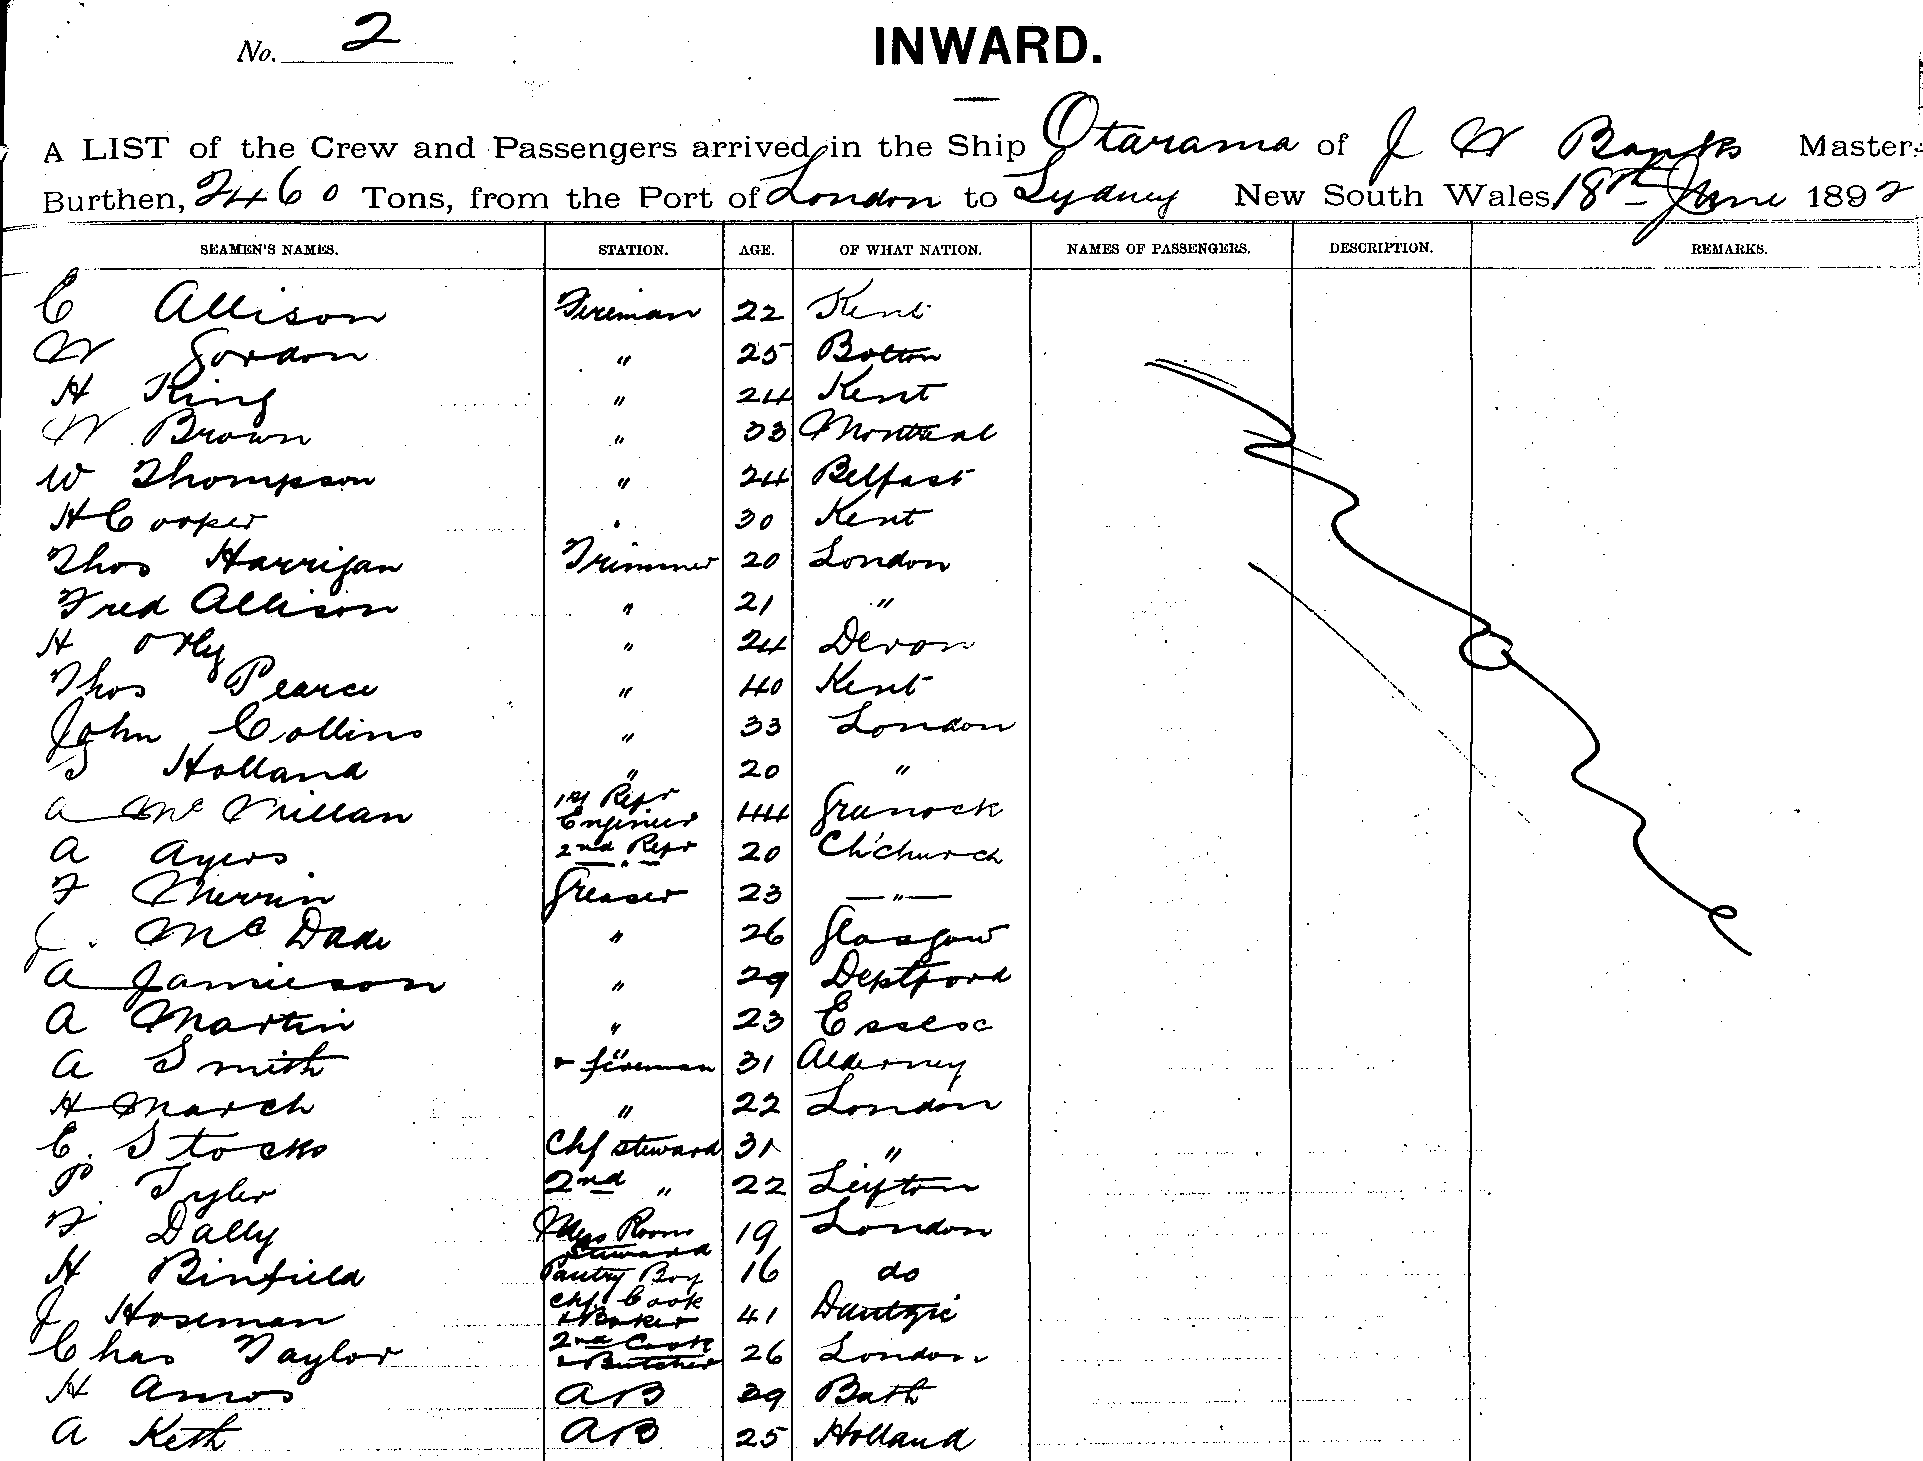 No. 2
INWARD.
A LIST of the Crew and Passengers arrived in the Ship Otarama of J W Banks Master
Burthen, 2460 Tons, from the Port of London to Sydney New South Wales 18th June 1892
SEAMEN'S NAMES. STATION. AGE. OF WHAT NATION. NAMES OF PASSENGERS. DESCRIPTION. REMARKS.
C Allison Fireman 22 Kent
W Gordon " 25 Bolton
H King " 24 Kent
W Brown " 33 Montreal
W Thompson " 24 Belfast
H Cooper " 30 Kent
Thos Harrigan Trimmer 20 London
Fred Allison " 21 "
H Orly " 24 Devon
Thos Pearce " 40 Kent
John Collins " 33 London
S Holland " 20 "
A McMillan 1st Refr Engineer 44 Greenock
A Ayers 2nd Refr " 20 Ch'church
F Merrin Greaser 23 "
J. McDade " 26 Glasgow
A Jamieson " 29 Deptford
A Martin " 23 Essex
A Smith " & fireman 31 Alderney
H March " 22 London
C. Stocks Chf Steward 31 "
P Tyler 2nd " 22 Leyton
F Dally Mess Room Steward 19 London
H Binfield Pantry Boy 16 do
J Hoseman Chf Cook & Baker 41 Dantzic
Chas Taylor 2nd Cook & Butcher 26 London
H Amos AB 39 Bath
A Keth AB 25 Holland